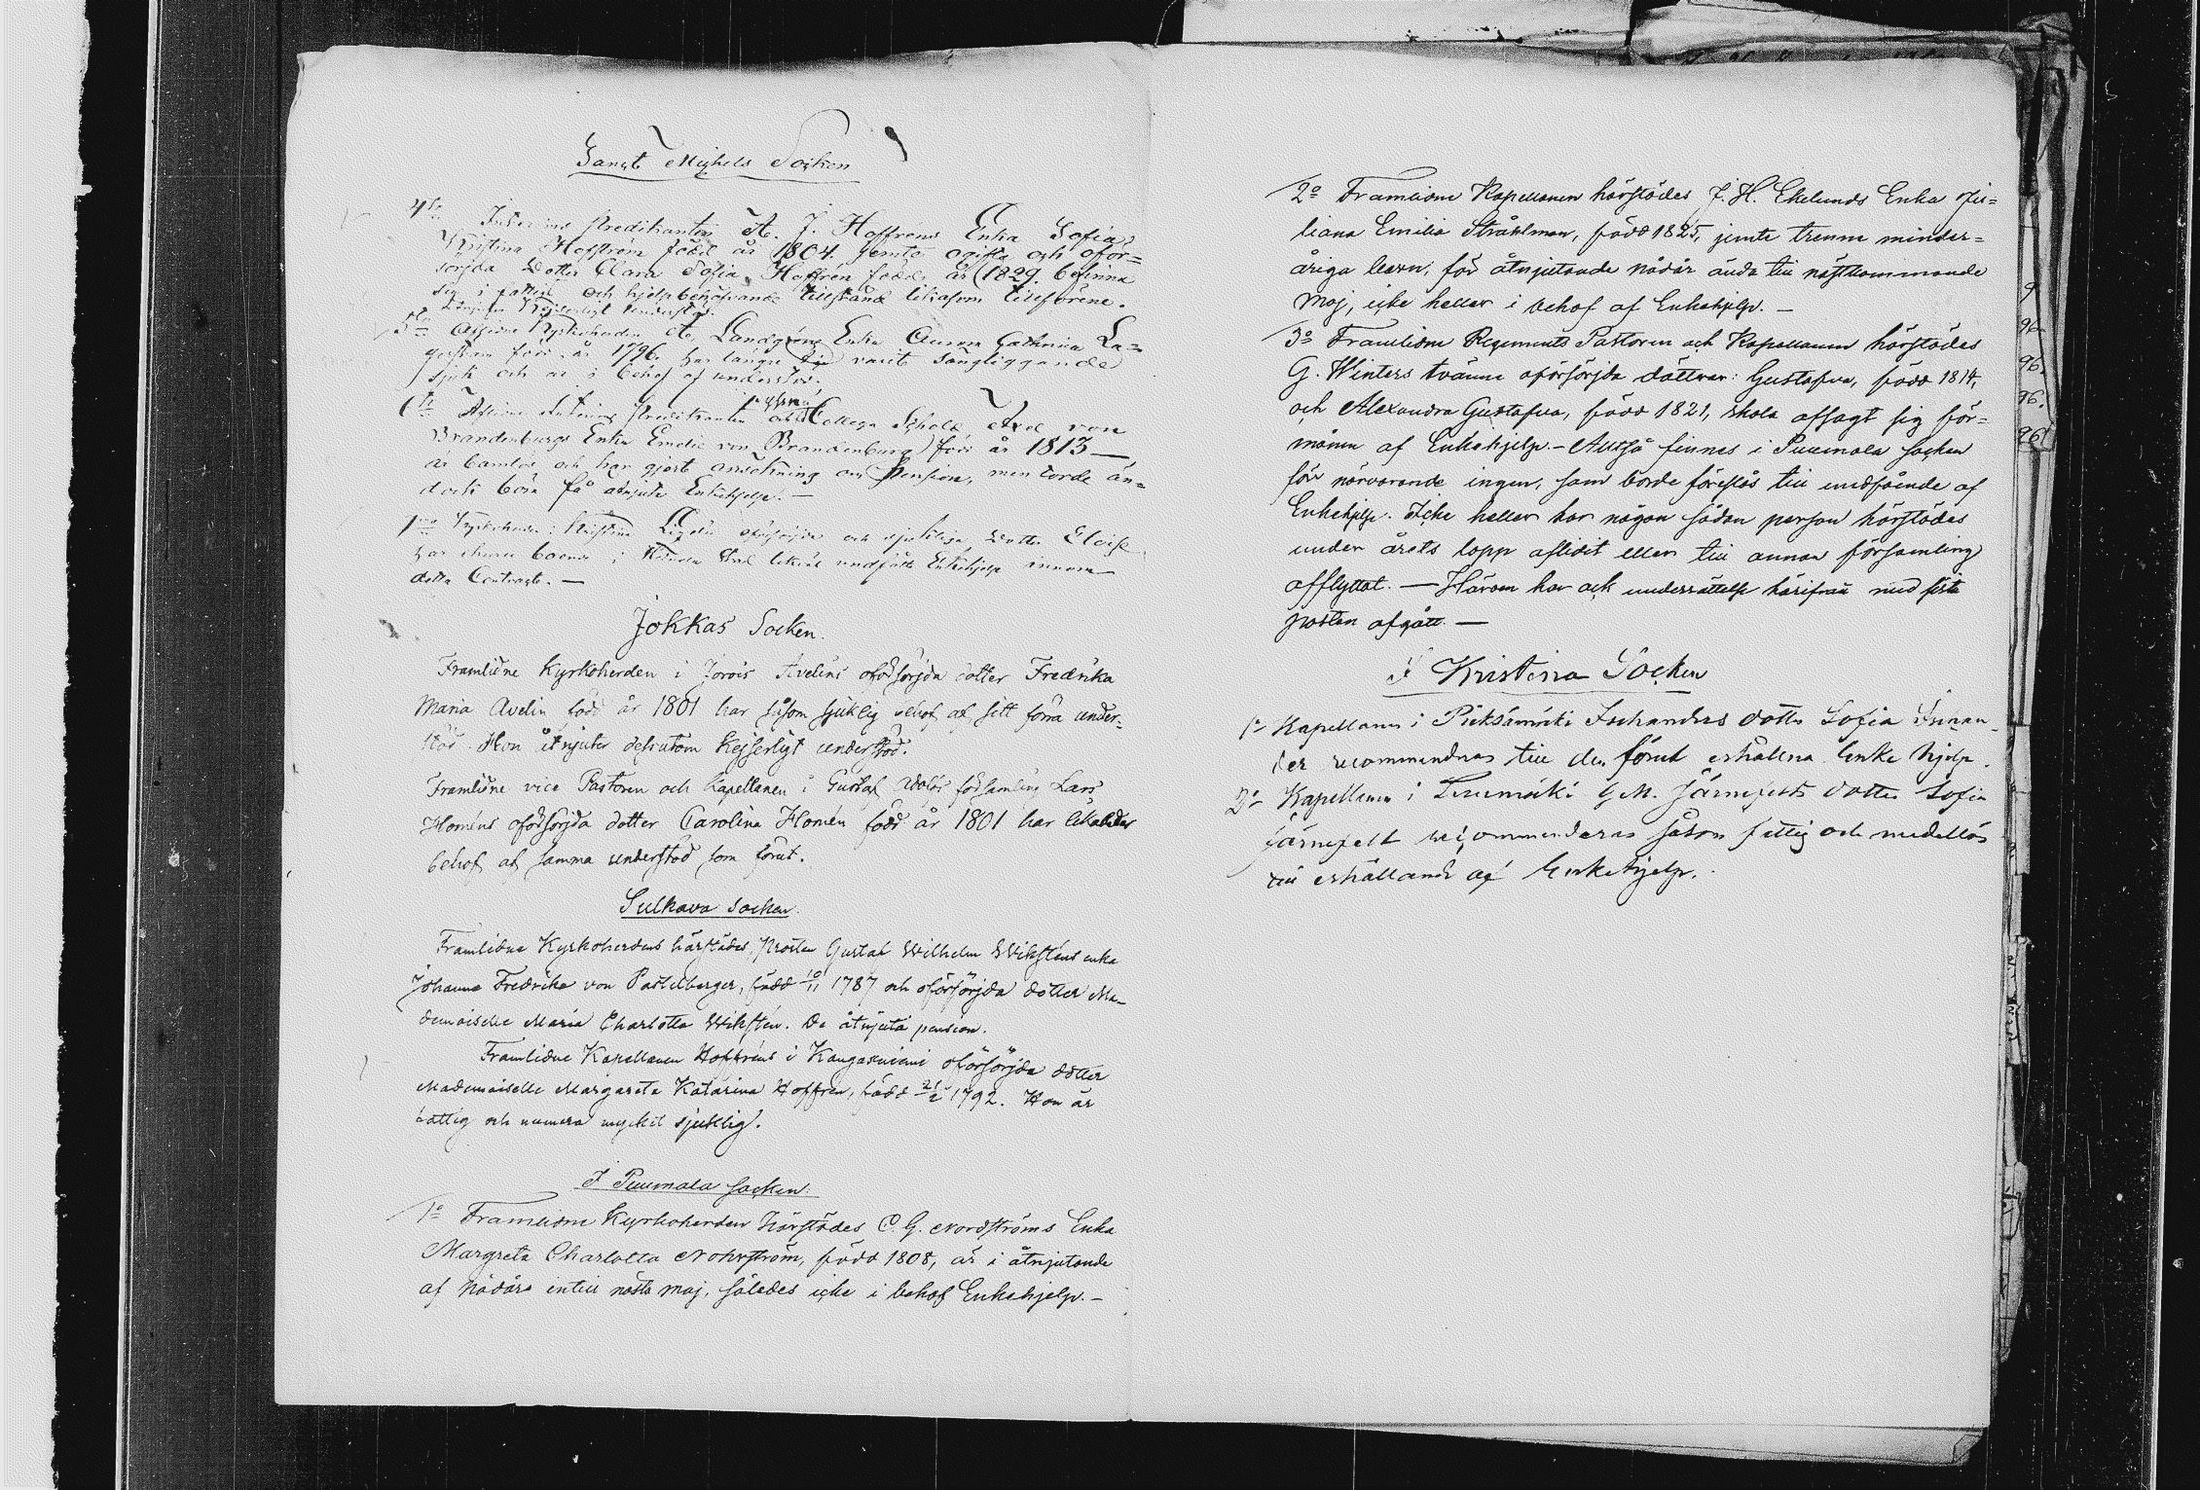 Sanct Michels Socken
4de Interims Predikanten A. J. Hoffrens Enka Sofia
Kristina Hoffrén född år 1804 jemte ogifta och oför=
sörjda Dotter Clara Sofia Hoffrén född år 1829. befinna
sig i fattig och hjelpbehöfvande tillstånd likasom tillförene.
Åtnjuter Kejserligt Understöd.
5te Aflidne Kyrkoherden A. Landgréns Enka Aurora Catharina La=
gerstam född år 1796. har längre tid varit sängliggande
sjuk och är i behof af understöd.
6te Aflidne Interims Predikanten och Collega Scholæ Axel von
Brandenburgs Enka Emelie von Brandenburg född år 1813 —
är barnlös och har gjort ansökning om Pension, men torde än=
dock böra få åtnjuta Enkehjelp. —
Kyrkoherden i Kristina oförsörjda och sjukliga Dotter Eloise
har ehuru boende i Stad likväl undfått Enkehjelp innom
detta Contract. —
Jokkas Socken.
Framlidne Kyrkoherden i Jorois Avelins oförsörjda dotter Fredrika
Maria Avelin född år 1801 har såsom sjuklig behof af sitt förra under-
stöd. Hon åtnjuter dessutom Kejserligt understöd.
Framlidne vice Pastoren och Kapellanen i Gustaf Adolfs församling Lars
Homéns oförsörjda dotter Carolina Homén född år 1801 har likaledes
behof af samma understöd som förut.
Sulkava socken.
Framlidne Kyrkoherdens härstädes, Prosten Gustaf Wilhelm Wiksténs enka
Johanna Fredrika von Pastelberger, född 10/11 1787 och oförsörjda dotter Ma-
demoiselle Maria Charlotta Wikstén. De åtnjuta pension.
Framlidne Kapellanen Hoffréns i Kangasniemi oförsörjda dotter
Mademoiselle Margareta Katarina Hoffrén, född 21/2 1792. Hon är
fattig och numera mycket sjuklig.
I Puumala socken.
1o Framlidne Kyrkoherden härstädes C. G. Nordströms Enka
Margreta Charlotta Nohrström, född 1808, är i åtnjutande
af Nådårs intill nästa maj, således icke i behof Enkehjelp. —
2o Framlidne Kapellanen härstädes J. H. Ekelunds Enka Ju=
liana Emilia Stråhlman, född 1825, jemte trenne minder=
åriga barn, för åtnjutande nådår ända till nästkommande
Maj, icke heller i behof af Enkehjelp. —
3o Framlidne Regiments Pastoren och Kapellanen härstädes
G. Winters tvänne oförsörjda döttrar: Gustafva, född 1814,
och Alexandra Gustafva, född 1821, skola afsagt sig för=
månen af Enkehjelp. — Alltså finnes i Puumala socken
för närvarande ingen, som borde föreslås till undfående af
Enkehjelp. Icke heller har någon sådan person härstädes
under årets lopp aflidit eller till annan församling
afflyttat. — Härom har ock underrättelse härifrån med sista
posten afgått. —
I Kristina Socken
1o Kapellanen i Pieksämäki Ischanders dotter Sofia Ischan-
der recommenderas till den förut erhållna Enke hjelp.
2o Kapellanen i Luumäki G. M. Järnefelts dotter Sofia
Järnefelt recommenderas såsom fattig och medellös
till erhållande af Enkehjelp.
9
96
96.
96.
961